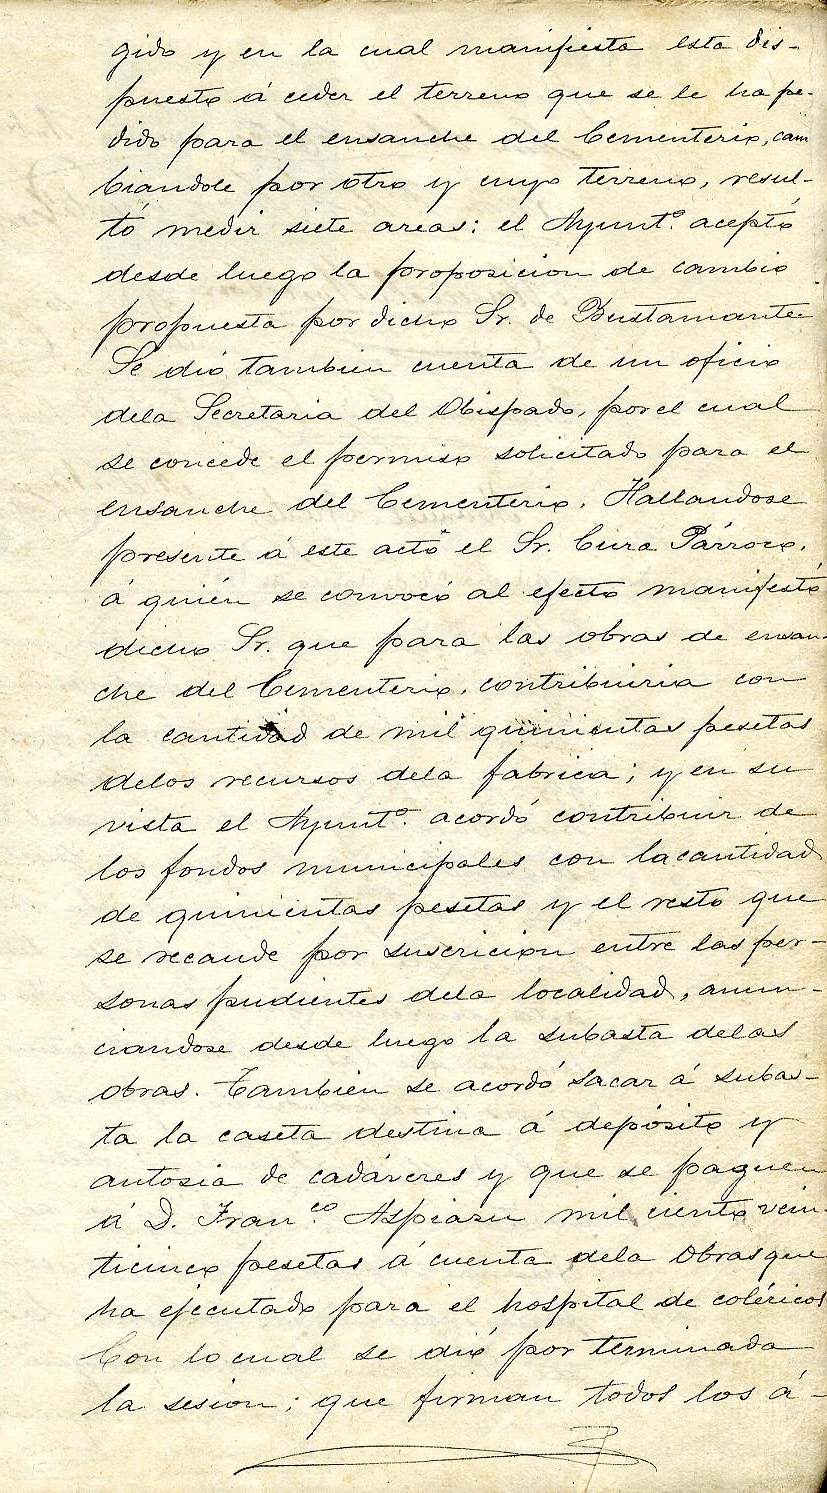 gido y en la cual manifiesta esta dis-
puesto á ceder el terreno que se le ha pe-
dido para el ensanche del Cementerio, cam
biandole por otro y cuyo terreno, resul-
tó medir siete areas: el Ayuntº. aceptó
desde luego la proposicion de cambio
propuesta por dicho Sr. de Bustamante.
Se dió tambien cuenta de un oficio
dela Secretaria del Obispado, por el cual
se concede el permiso solicitado para el
ensanche del Cementerio. Hallandose
presente á este acto el Sr. Cura Párroco,
á quién se convocó al efecto manifestó
dicho Sr. que para las obras de ensan-
che del Cementerio, contribuiria con
la cantidad de mil quinientas pesetas
delos recursos dela fabrica; y en su
vista el Ayuntº. acordó contribuir de
los fondos municipales con lacantidad
de quinientas pesetas y el resto que
se recaude por suscricion entre las per-
sonas pudientes dela localidad, anun-
ciandose desde luego la subasta delas
obras. Tambien se acordó sacar á subas-
ta la caseta destina á depósito y
autosia de cadáveres y que se paguen
á D. Franco. Aspiazu mil ciento vein-
ticinco pesetas á cuenta dela Obras que
ha ejecutado para el hospital de coléricos
Con lo cual se dió por terminada
la sesion; que firman todos los á-